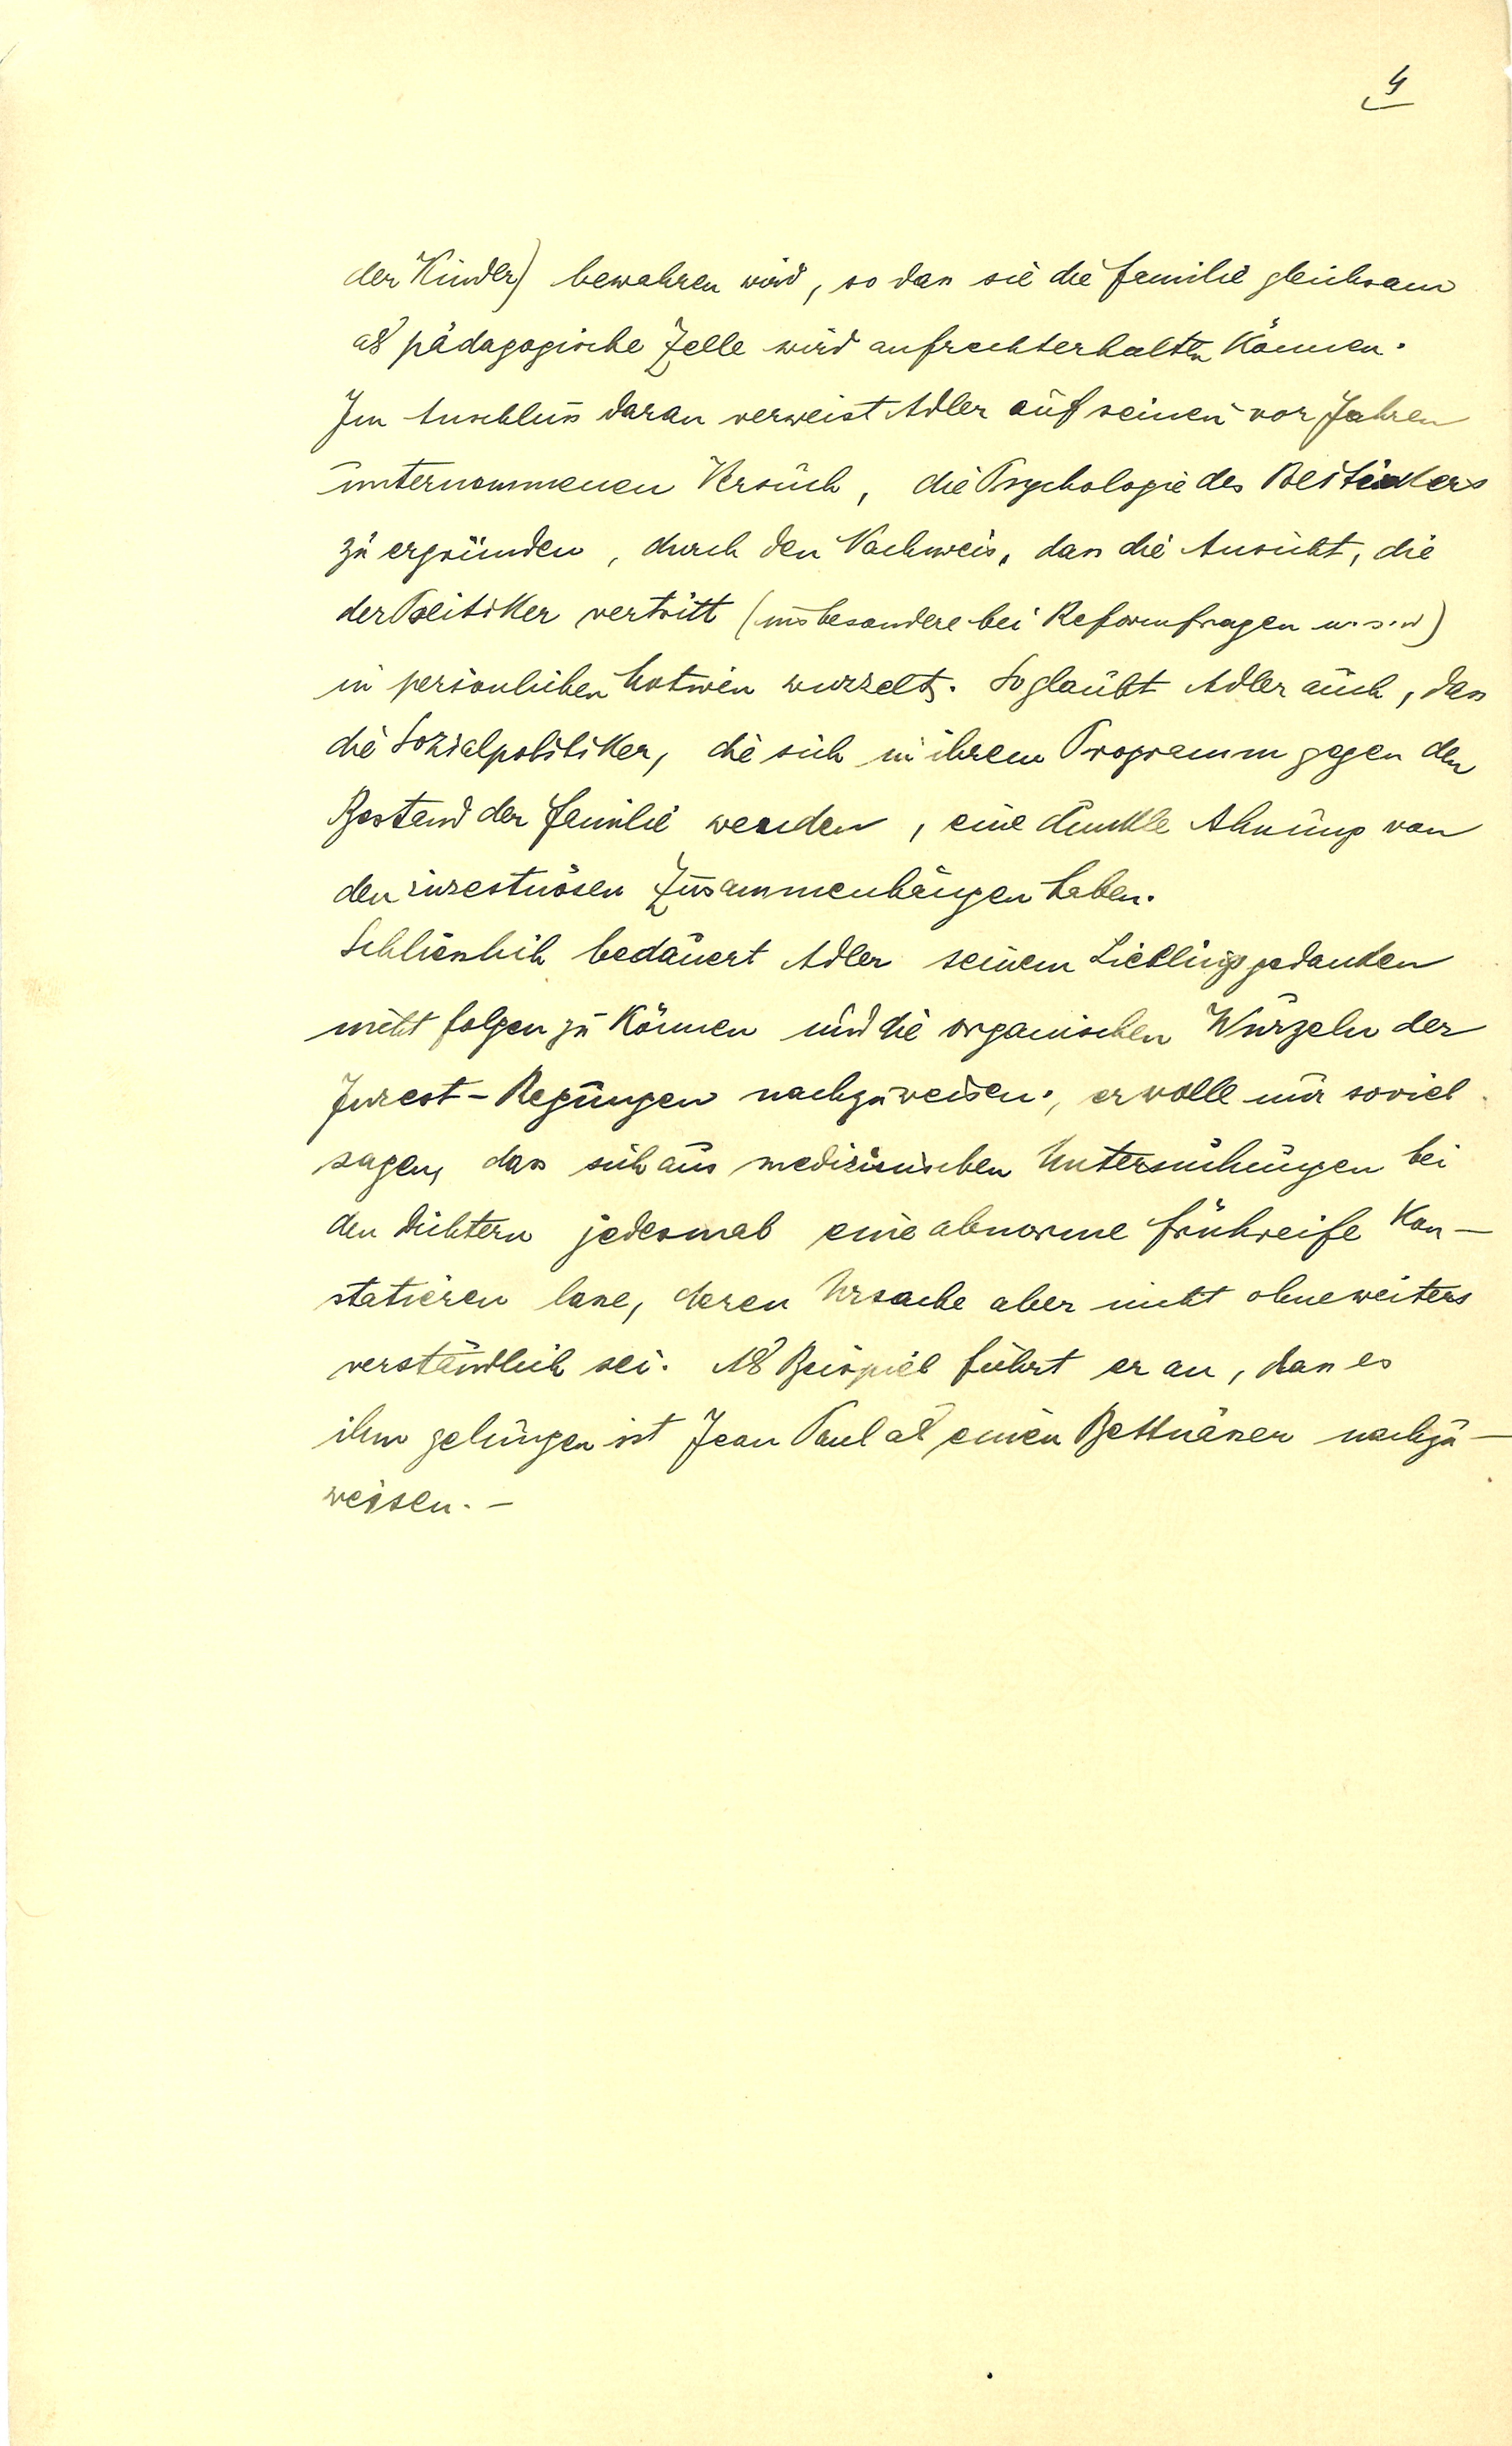 4
der Kinder) bewahren wird, so dass sie die Familie gleichsam
als pädagogische Zelle wird aufrechterhalten können.
Im Anschluss daran verweist Adler auf seinen vor Jahren
unternommenen Versuch, die Psychologie des Politikers
zu ergründen, durch den Nachweis, dass die Ansicht, die
der Politiker vertritt (insbesondere bei Reformfragen u.s.w)
in persönlichen Motiven wurzelt. So glaubt Adler auch, dass
die Sozialpolitiker, die sich in ihrem Programm gegen den
Bestand der Familie wenden, eine dunkle Ahnung von
den inzestuösen Zusammenhängen haben.
Schliesslich bedauert Adler seinem Lieblingsgedanken
nicht folgen zu können und die organischen Wurzeln der
Inzest-Regungen nachzuweisen; er wolle nur soviel
sagen, dass sich aus medizinischen Untersuchungen bei
den Dichtern jedesmal eine abnorme Frühreife kon-
statieren lasse, deren Ursache aber nicht ohneweiters
verständlich sei. Als Beispiel führt er an, dass es
ihm gelungen ist Jean Paul als einen Bettnässer nachzu-
weisen. -